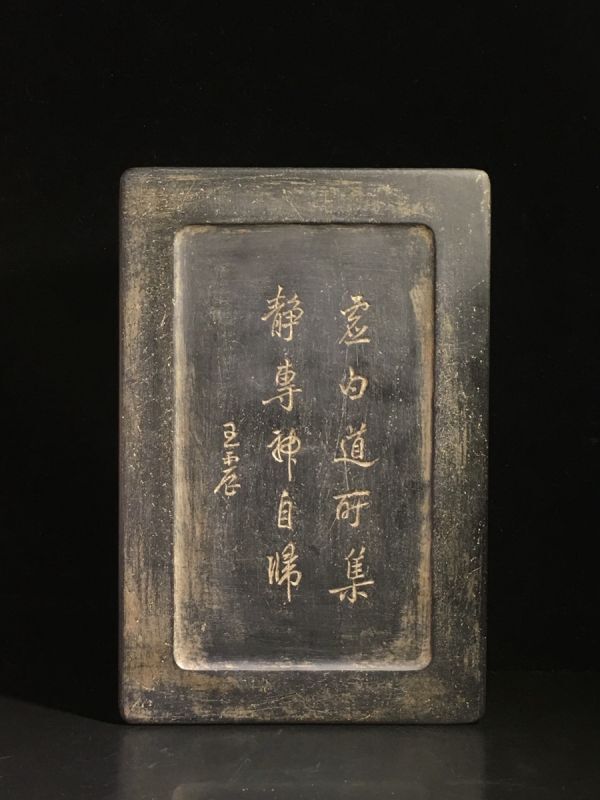 虚白道所集
静專神自歸
王